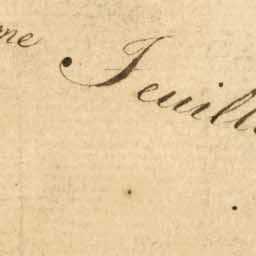 me Feuill